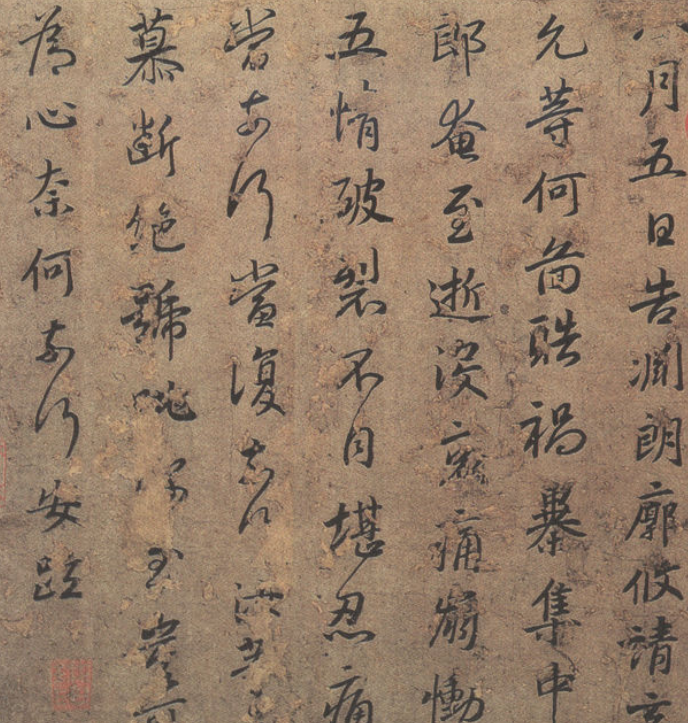 八月五日告淵朗廓攸靖玄
允等何圖酷禍暴集中
郎奄至逝没哀痛崩慟
五情破裂不自堪忍痛
當奈何當復奈何汝等
慕斷絶號咷深至豈可
為心奈何奈何安疏